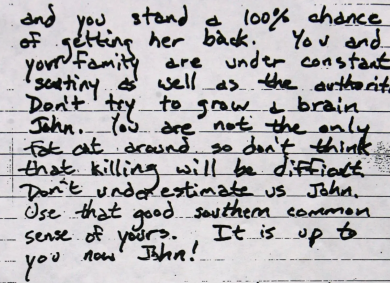 and you stand a 100% chance
of getting her back. You and
your family are under constant
scutiny as well as the authorit
Don't try to grow a brain
John. You are not the only
fat cat around so don't think
that killing will be difficult
Don't underestimate us John.
Use that good southern common
sense of yours. It is up to
you now John!